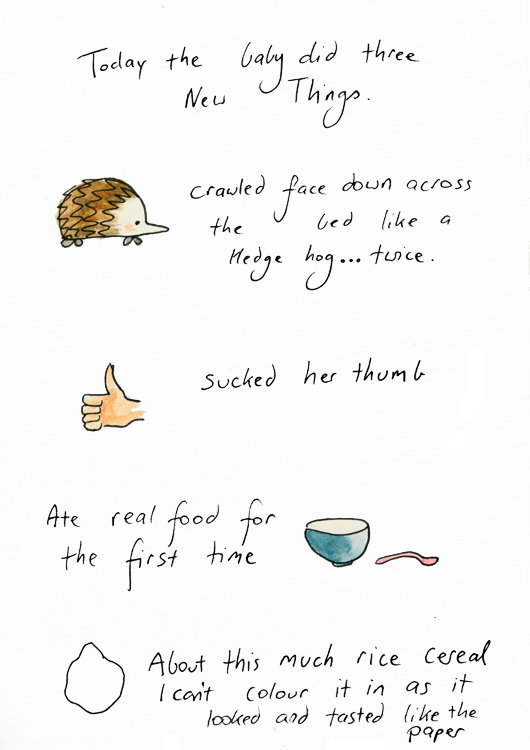 Today the baby did three
New Things.
crawled face down across
the bed like a
Hedge hog... twice.
sucked her thumb
Ate real food for
the first time
About this much rice cereal
I can't colour it in as it
looked and tasted like the
paper